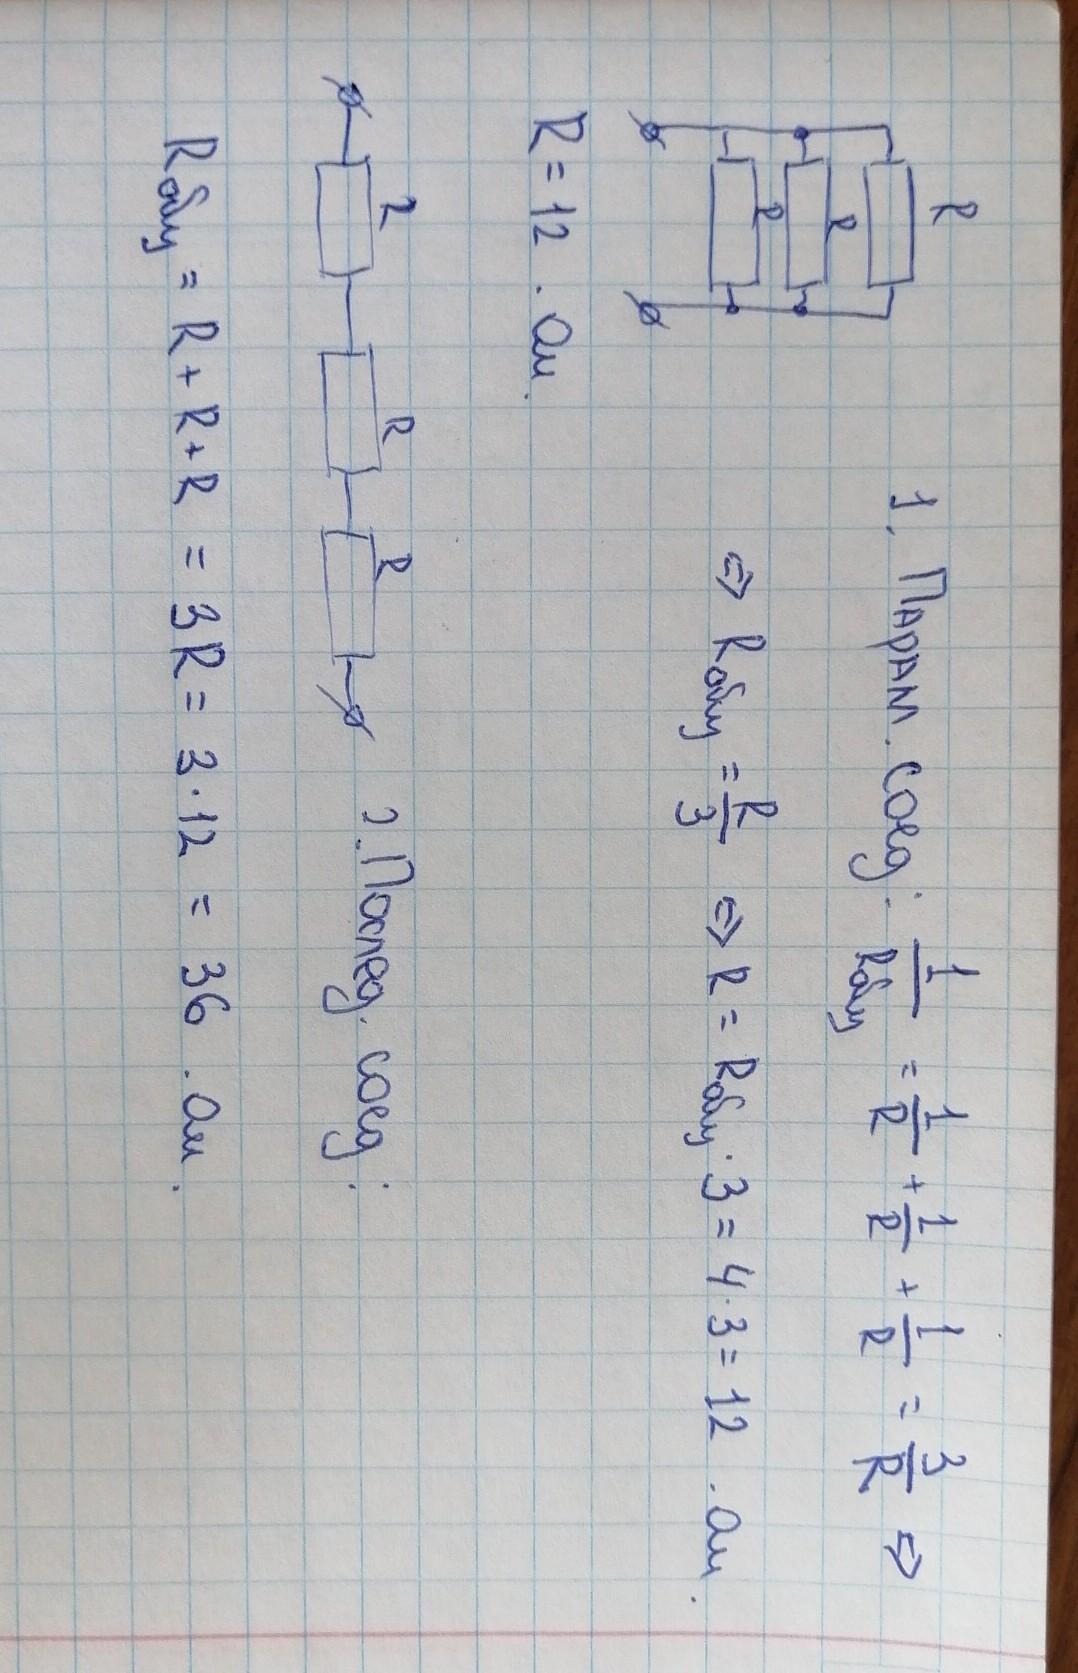 R
R
R
1. Парам. соед: 1/Rобщ = 1/R + 1/R + 1/R = 3/R ⇒
⇒ Rобщ = R/3 ⇒ R = Rобщ · 3 = 4 · 3 = 12 . Ом.
R = 12 . Ом.
R R R
2. Послед. соед:
Rобщ = R + R + R = 3R = 3 · 12 = 36 . Ом.